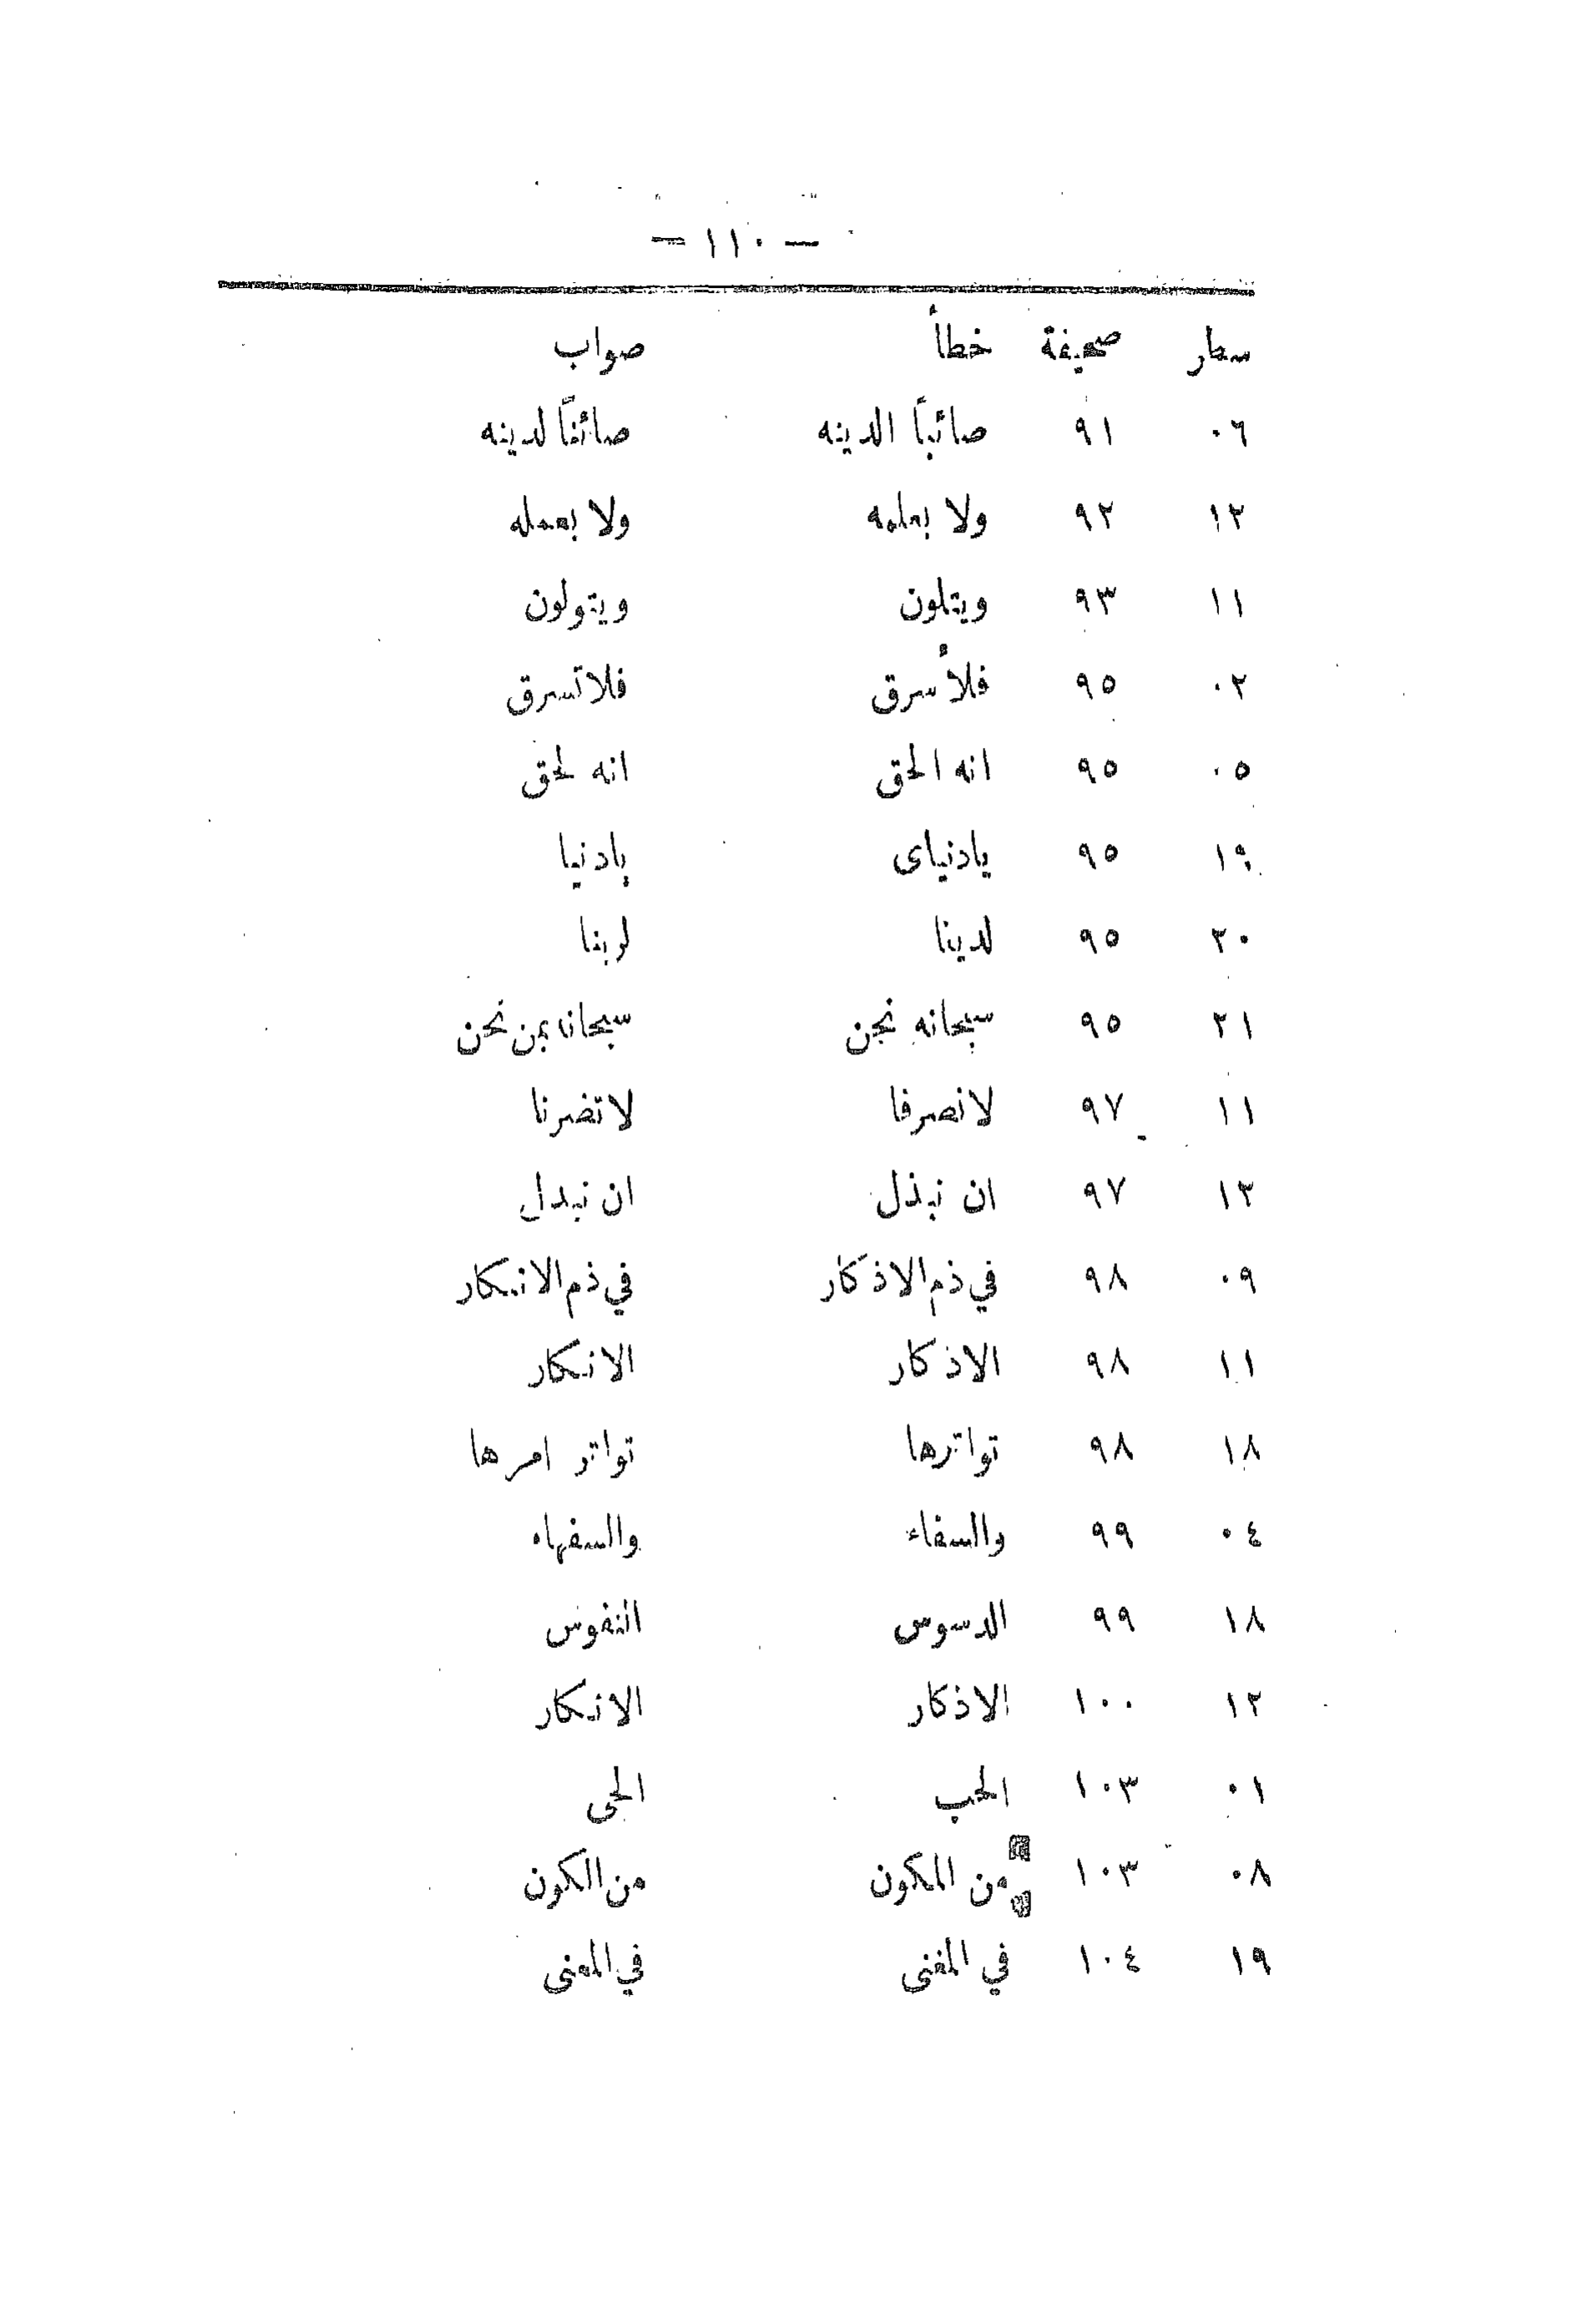 — ١١٠ —
سطر صحيفة خطأ صواب
٠٦ ٩١ صائباً الدينه صائفاً لدينه
١٢ ٩٢ ولا بعلمه ولا بعمله
١١ ٩٣ ويتلون ويتولون
٠٢ ٩٥ فلأسرق فلاتسرق
٠٥ ٩٥ انه الحق انه لحق
١٩ ٩٥ يادنياى يادنيا
٢٠ ٩٥ لدينا لربنا
٢١ ٩٥ سبحانه نحن نحن
١١ ٩٧ لانصرفا لاتضرنا
١٢ ٩٧ ان نبذل ان نبدل
٠٩ ٩٨ في ذم الاذكار في ذم الانكار
١١ ٩٨ الاذكار الانكار
١٨ ٩٨ تواترها تواتر امرها
٠٤ ٩٩ والسفاء والسفهاء
١٨ ٩٩ الدسوس النفوس
١٢ ١٠٠ الاذكار الانكار
٠١ ١٠٣ الحب الحى
٠٨ ١٠٣ من المكون من الكون
١٩ ١٠٤ في المغنى في المعنى